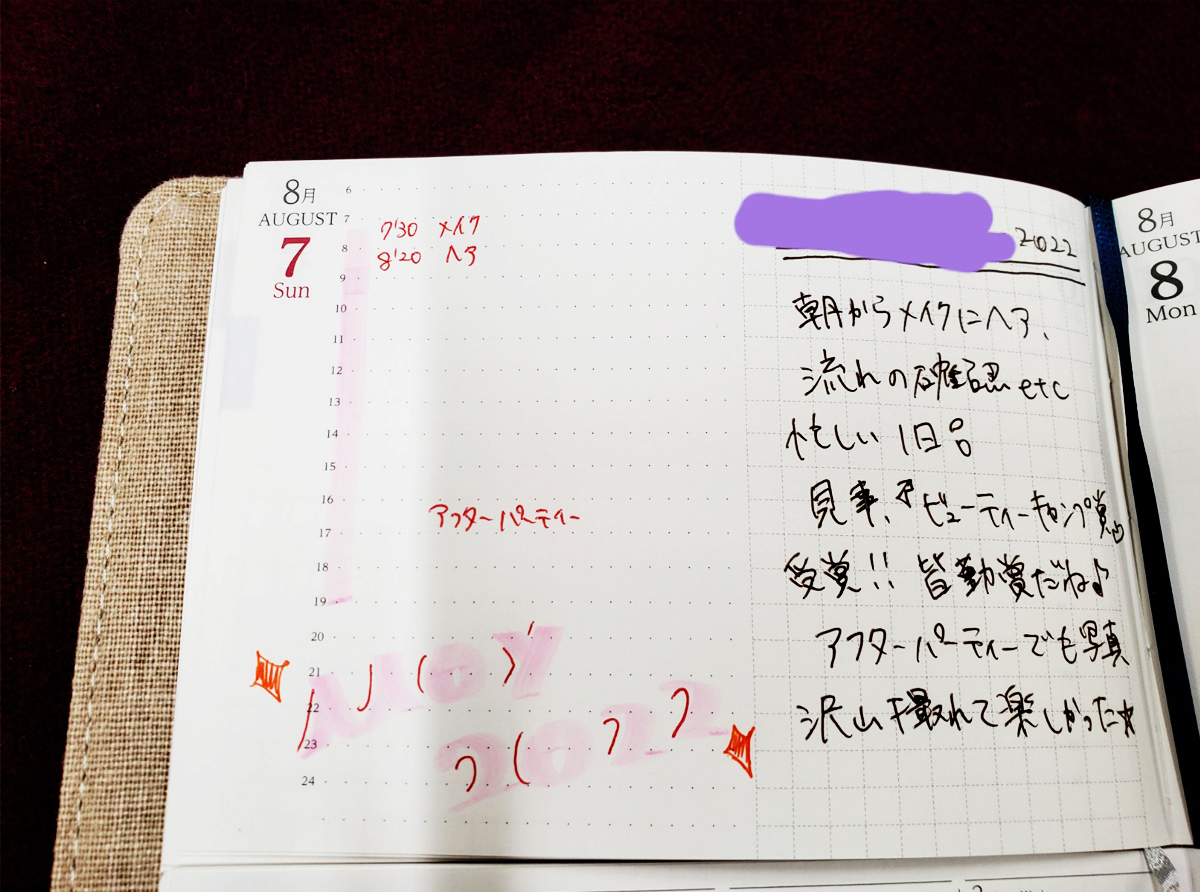 8月
AUGUST
7
Sun
6
7
8
9
10
11
12
13
14
15
16
17
18
19
20
21
22
23
24
7:30 メイク
8:20 ヘア
アフターパーティー
2022
2022
朝からメイクにヘア、
流れの確認etc
忙しい1日。
見事、ビューティーキャンプ賞
受賞!! 皆勤賞だね♪
アフターパーティーでも写真
沢山撮れて楽しかった☆
8月
AUGUST
8
Mon